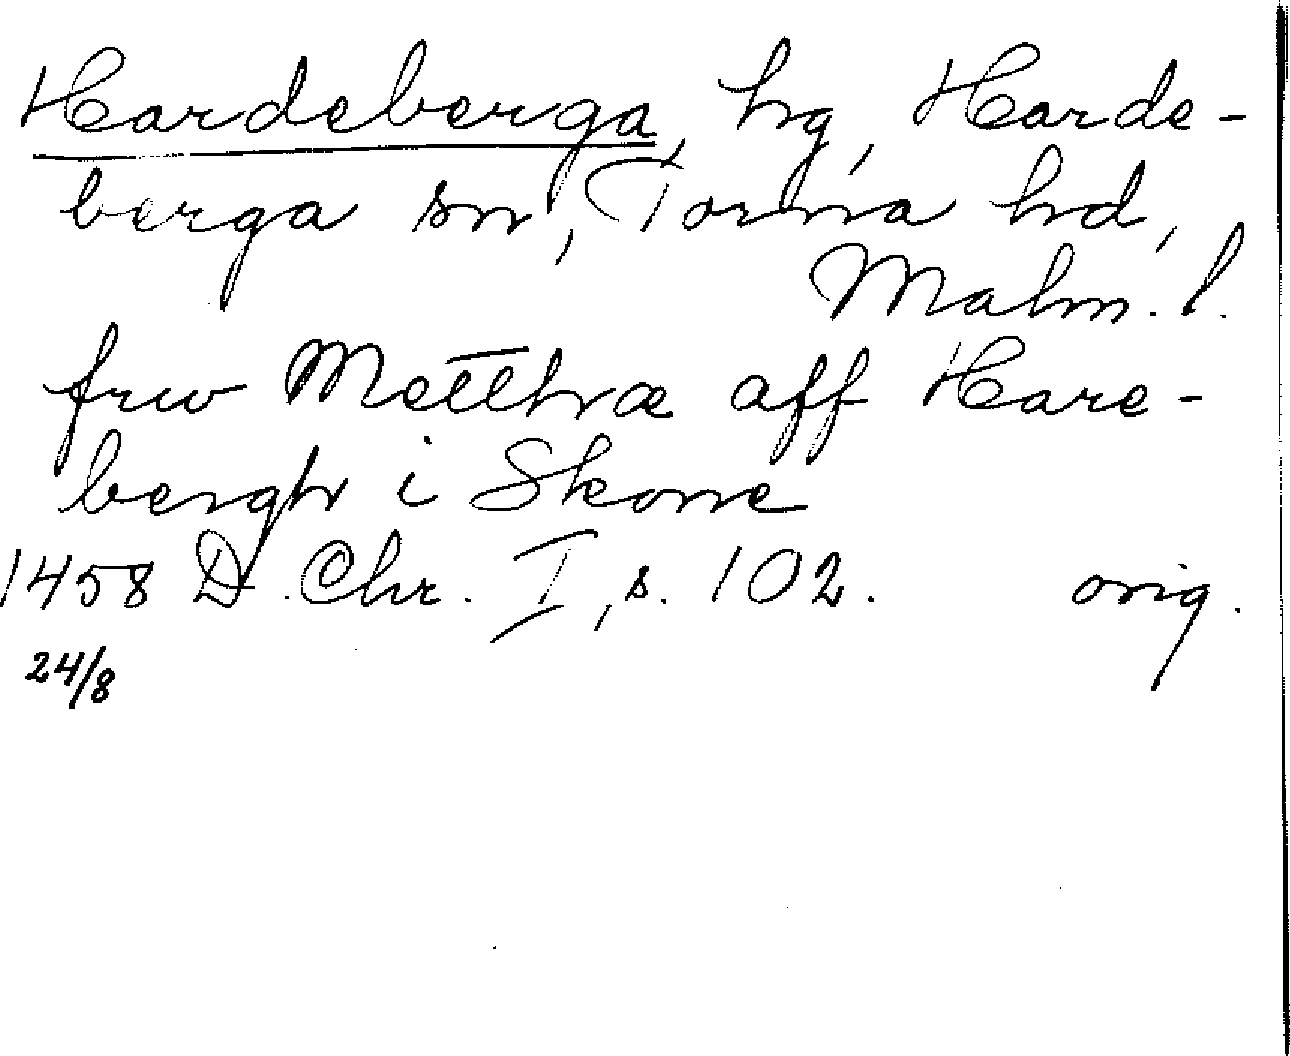 Hardeberga, hg, Harde-
berga sn, Torna hd,
Malm. l.
frw Metthæ aff Hare-
bergh i Skone
1458 D. Chr. I, s. 102. orig.
24/8